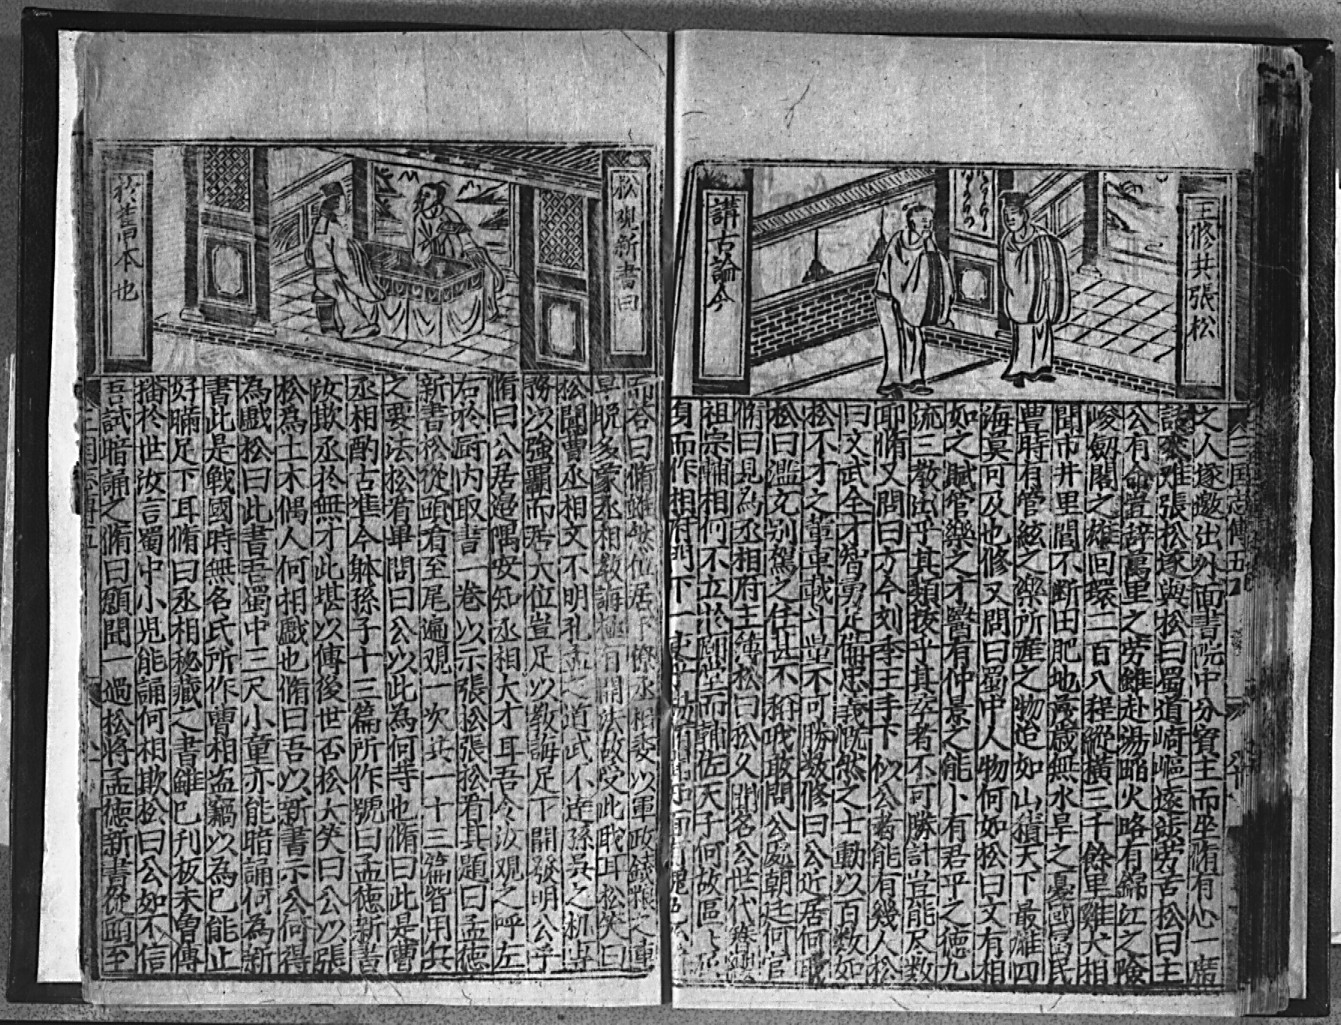 王修共張松
講古論今
三国志傳五
之人遂邀出外面書院中分賓主而坐脩有心一席
話來难張松遂與松曰蜀道崎嶇遠來劳苦松曰主
公有命豈辞萬里之劳雖赴湯蹈火略有綿江之險
峻劔閣之雄回環二百八程縱横三千餘里雞犬相
聞市井里閭不断田肥地歲歲無水旱之憂國富民
豊時有管絃之樂所産之物追如山積天下最雄四
海莫可及也修又問曰蜀中人物何如松曰文有相
如之賦管樂之才醫有仲景之能卜有君平之德九
流三教出乎其類拔乎其萃者不可勝計豈能尽数
耶脩又問曰方今刘季王手下似公者能有幾人松
曰文武全才智勇足備忠義慨然之士動以百数如
松不才之輩車載斗量不可勝数修曰公近居何職
松曰濫充别駕之任甚不称职敢問公處朝廷何官
脩曰見為丞相府主簿松曰松久聞名公世代簪纓
祖宗輔相何不立於廟堂而輔佐天子何故區々
身而作相府門下一吏乎
松觀新書曰
於舊本也
而答曰脩雖然位居下僚丞相委以軍政錢粮之重
早晚多蒙丞相教誨極有開法故受此职耳松笑曰
松聞曹丞相文不明孔孟之道武不達孫吳之机専
務以強覇而居大位豈足以教誨足下開發明公乎
脩曰公居邉隅安知丞相大才耳吾令汝观之呼左
右於厨内取書一卷以示張松張松看其題曰孟德
新書松從頭看至尾遍观一次共一十三篇皆用兵
之要法松看畢問曰公以此為何等也脩曰此是曹
丞相酌古准今躰孫子十三篇所作號曰孟德新書
汝欺丞於無才此堪以傳後世否松大笑曰公以張
松為土木偶人何相戲也脩曰吾以新書示公何得
為戲松曰此書吾蜀中三尺小童亦能暗誦何為新
書此是戰國時無名氏所作曹相盗竊以為己能止
好瞞足下耳脩曰丞相秘藏之書雖已刊板未曽傳
播於世汝言蜀中小児能誦何相欺松曰公如不信
吾試暗誦之脩曰願聞一過松將孟德新書從頭至